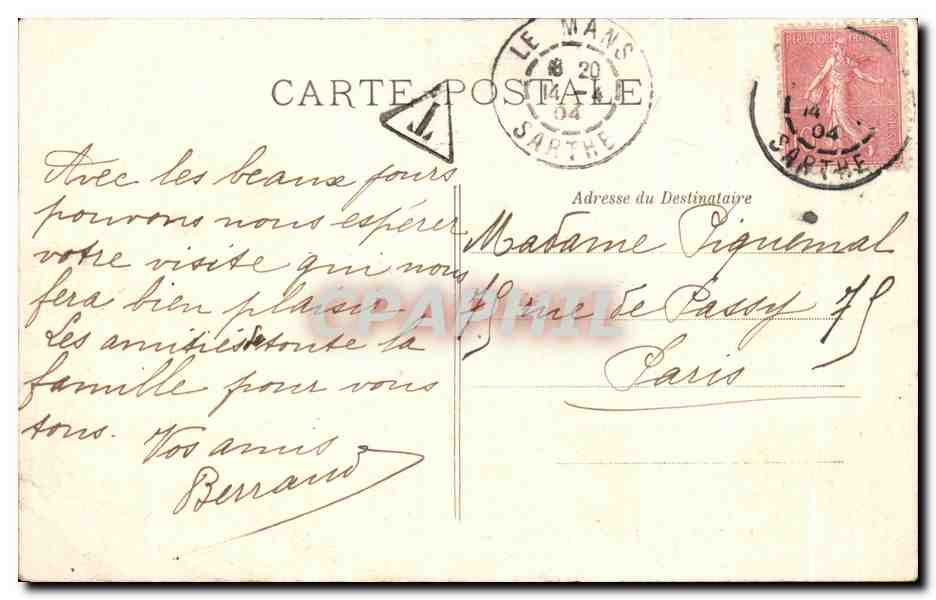 LE MANS
18 20
14 -4
04
SARTHE
REPUBLIQUE FRANCAISE
14
04
SARTHE
CARTE POSTALE
T
Avec les beaux jours
pouvons nous espérer
votre visite qui nous
fera bien plaisir
Les amitiés de toute la
famille pour vous
tous.
Vos amis
Berraud
Adresse du Destinataire
Madame Piquemal
75 rue de Passy 75
Paris
CPAPHIL